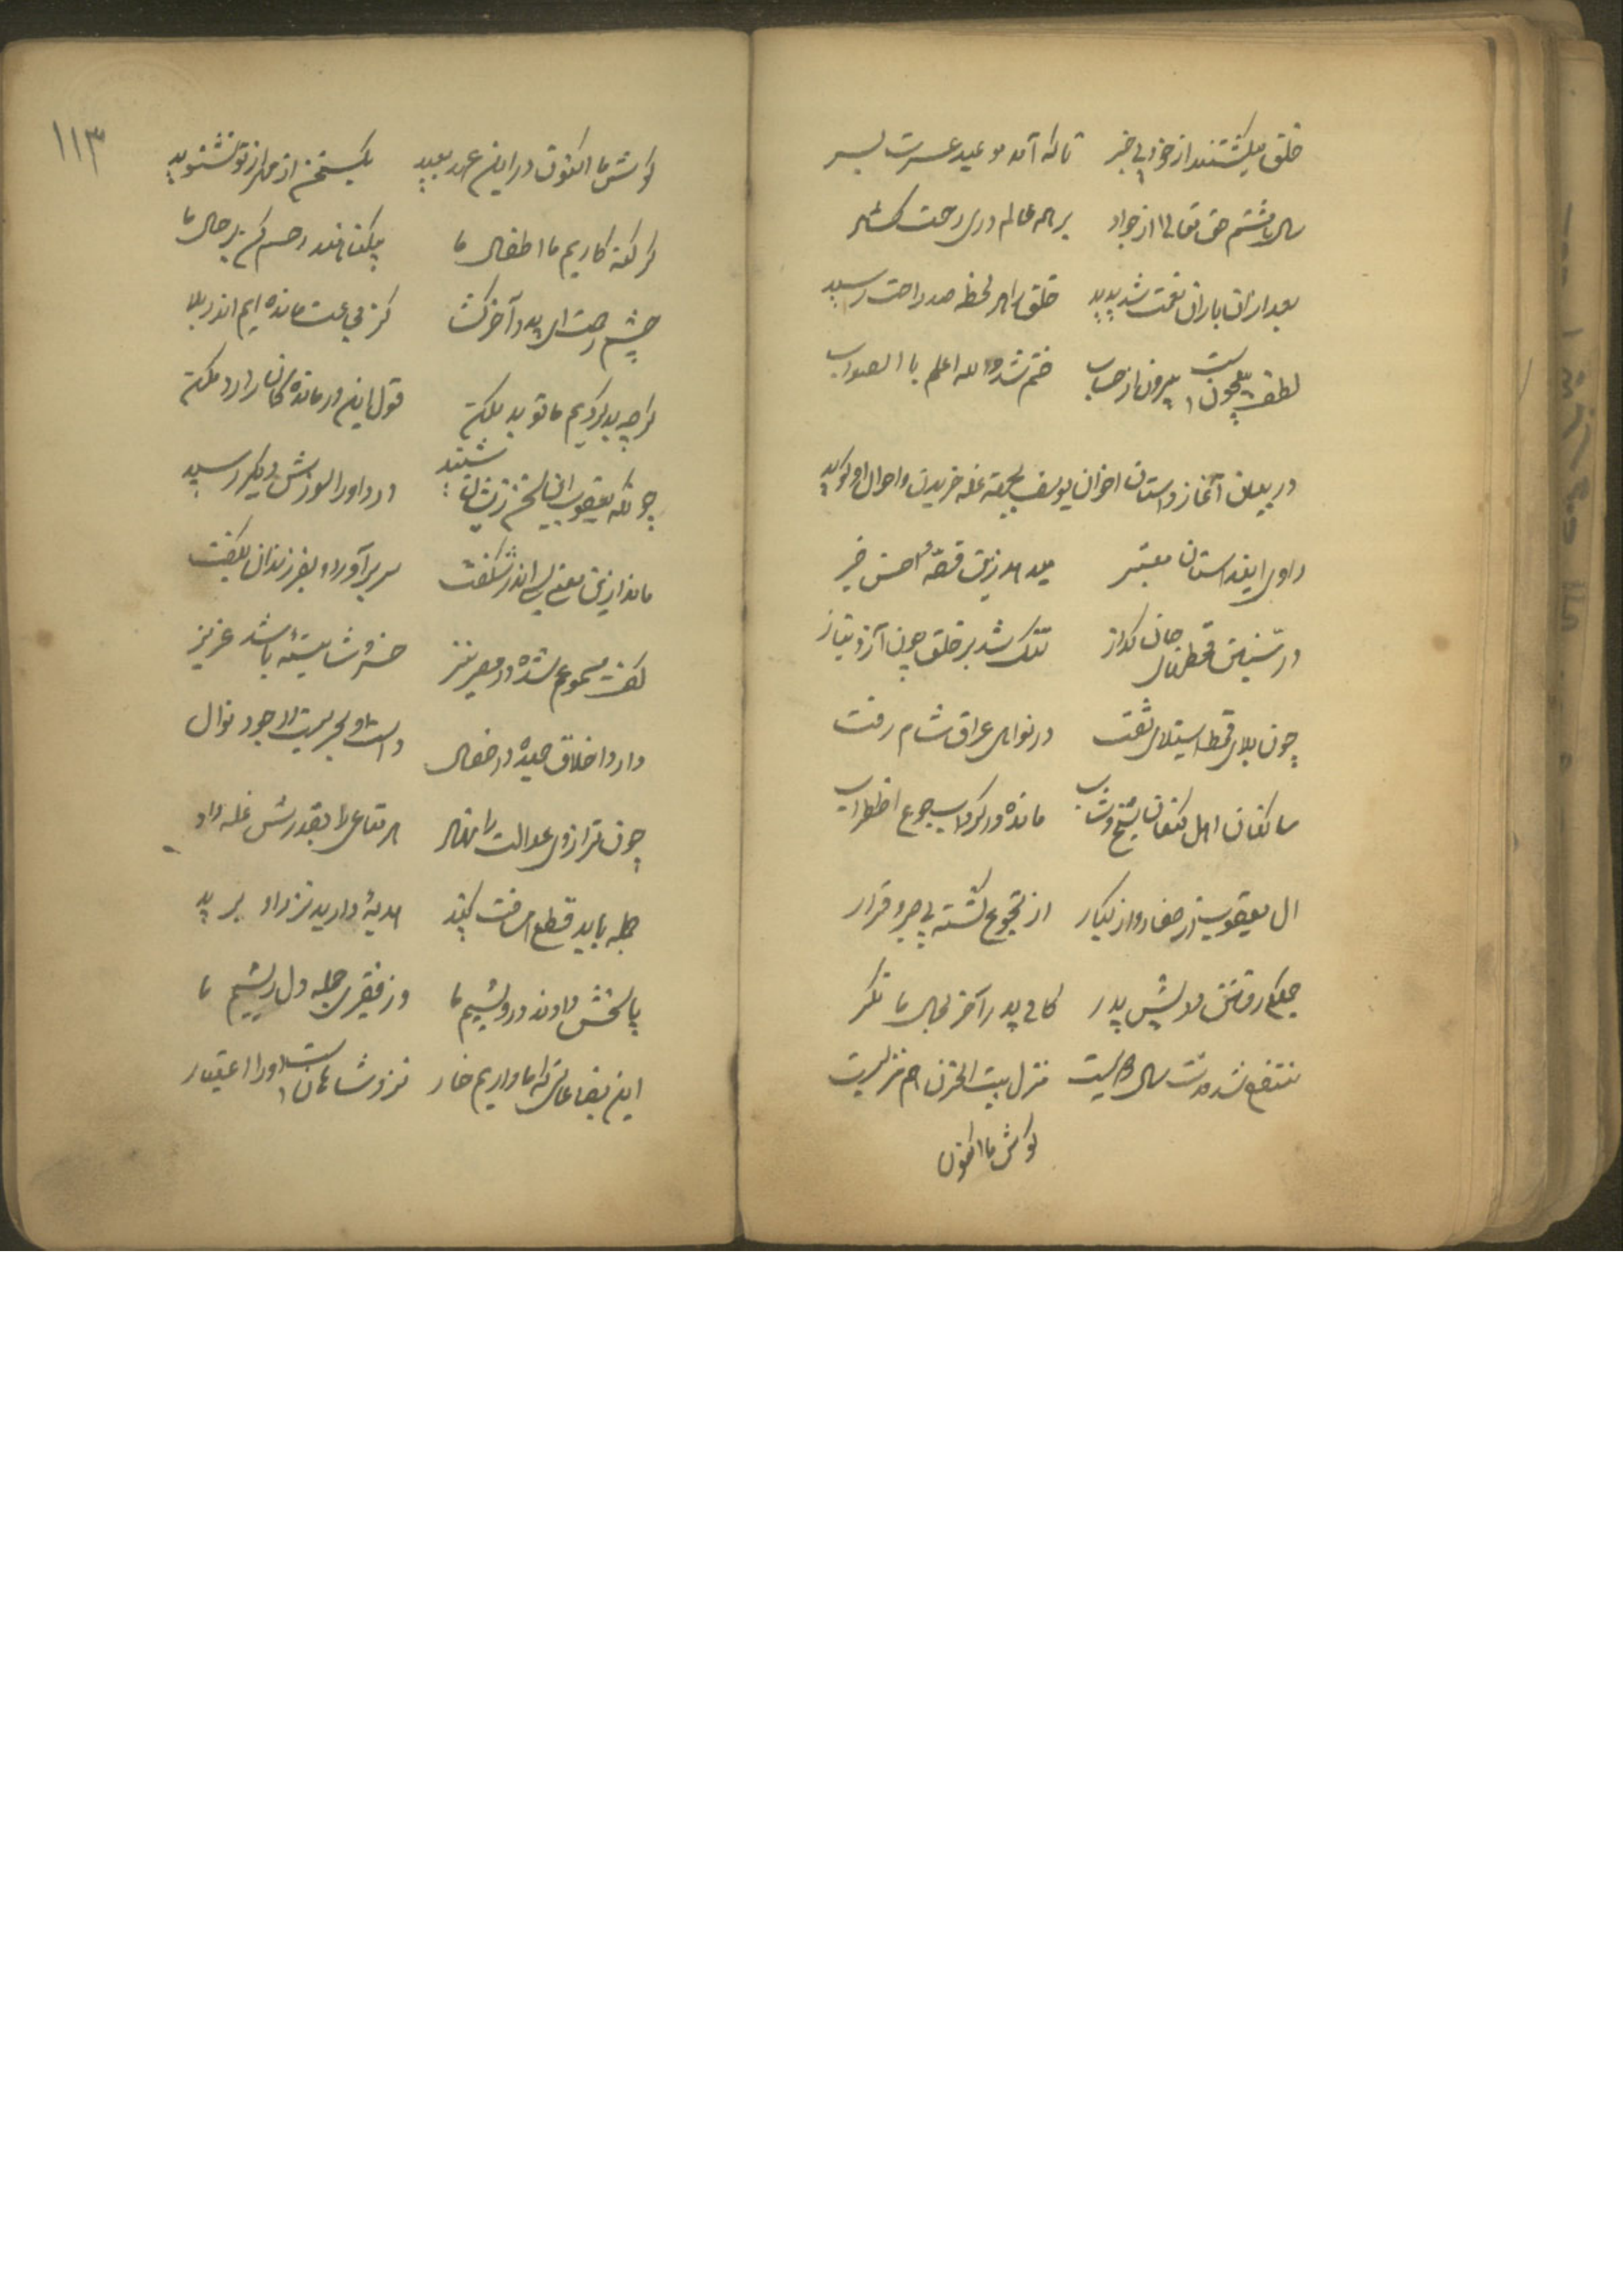 خلق میگشتند از خود بی خبر تا که آمد موعد عسرت بسر
سال هشتم حق تعالی از جواد بر همه عالم در رحمت گشاد
بعد از آن باران نعمت شد پدید خلق را هر لحظه صد راحت رسید
لطف بیچون است بیرون از حساب ختم شد والله اعلم با الصواب
در بیان آغاز داستان اخوان یوسف بجهته غله خریدن و احوال او گوید
راوی این داستان معتبر میدهد زین قصهٔ احسن خبر
در سنین قحط سال جان گداز تنگ شد بر خلق چون آز و نیاز
چون بلای قحط استیلای یافت در نوای عراق شام رفت
ساکنان اهل کنعان شیخ و شاب مانده در گرداب جوع اضطراب
ال یعقوب از صغار و از کبار از تجوع گشته بی صبر و قرار
جملگی رفتند پیش پدر کای پدر آخر بحال ما نگر
منتفع شد مدت سال دویست منزل بیت الحزن هم منزلیست
گوش ما اکنون
۱۱۳
گوش ما اکنون در این عهد بعید یکسخن از مهر از تو نشنوید
گر گنه کاریم ما اطفال ما بیگناهند رحم کن بر حال ما
چشم رحمت ای پدر آخر گشا کز مجاعت مانده ایم اندر بلا
گر چه بد کردیم ما تو بد مکن قول این درماندگان را رد مکن
چونکه یعقوب این سخن زیشان شنید درد او را سوزش دیگر رسید
ماند ازین معنی بسی اندر شگفت سر بر آورد و بفرزندان بگفت
گفت مسموعم شده در مصر نیز خسرو شایسته باشد عزیز
دارد اخلاق حمیده در خصال دست او بحریست از جود نوال
چون ترازوی عدالت را نهاد هر متاعی را بقدرش غله داد
جمله باید قطع مسافت کنید هدیهٔ دارید نزد او برید
پاسخش دادند درویشیم ما وز فقیری جمله دل ریشیم ما
این بضاعاتی که ما داریم خار نزد شاهان است او را اعتبار